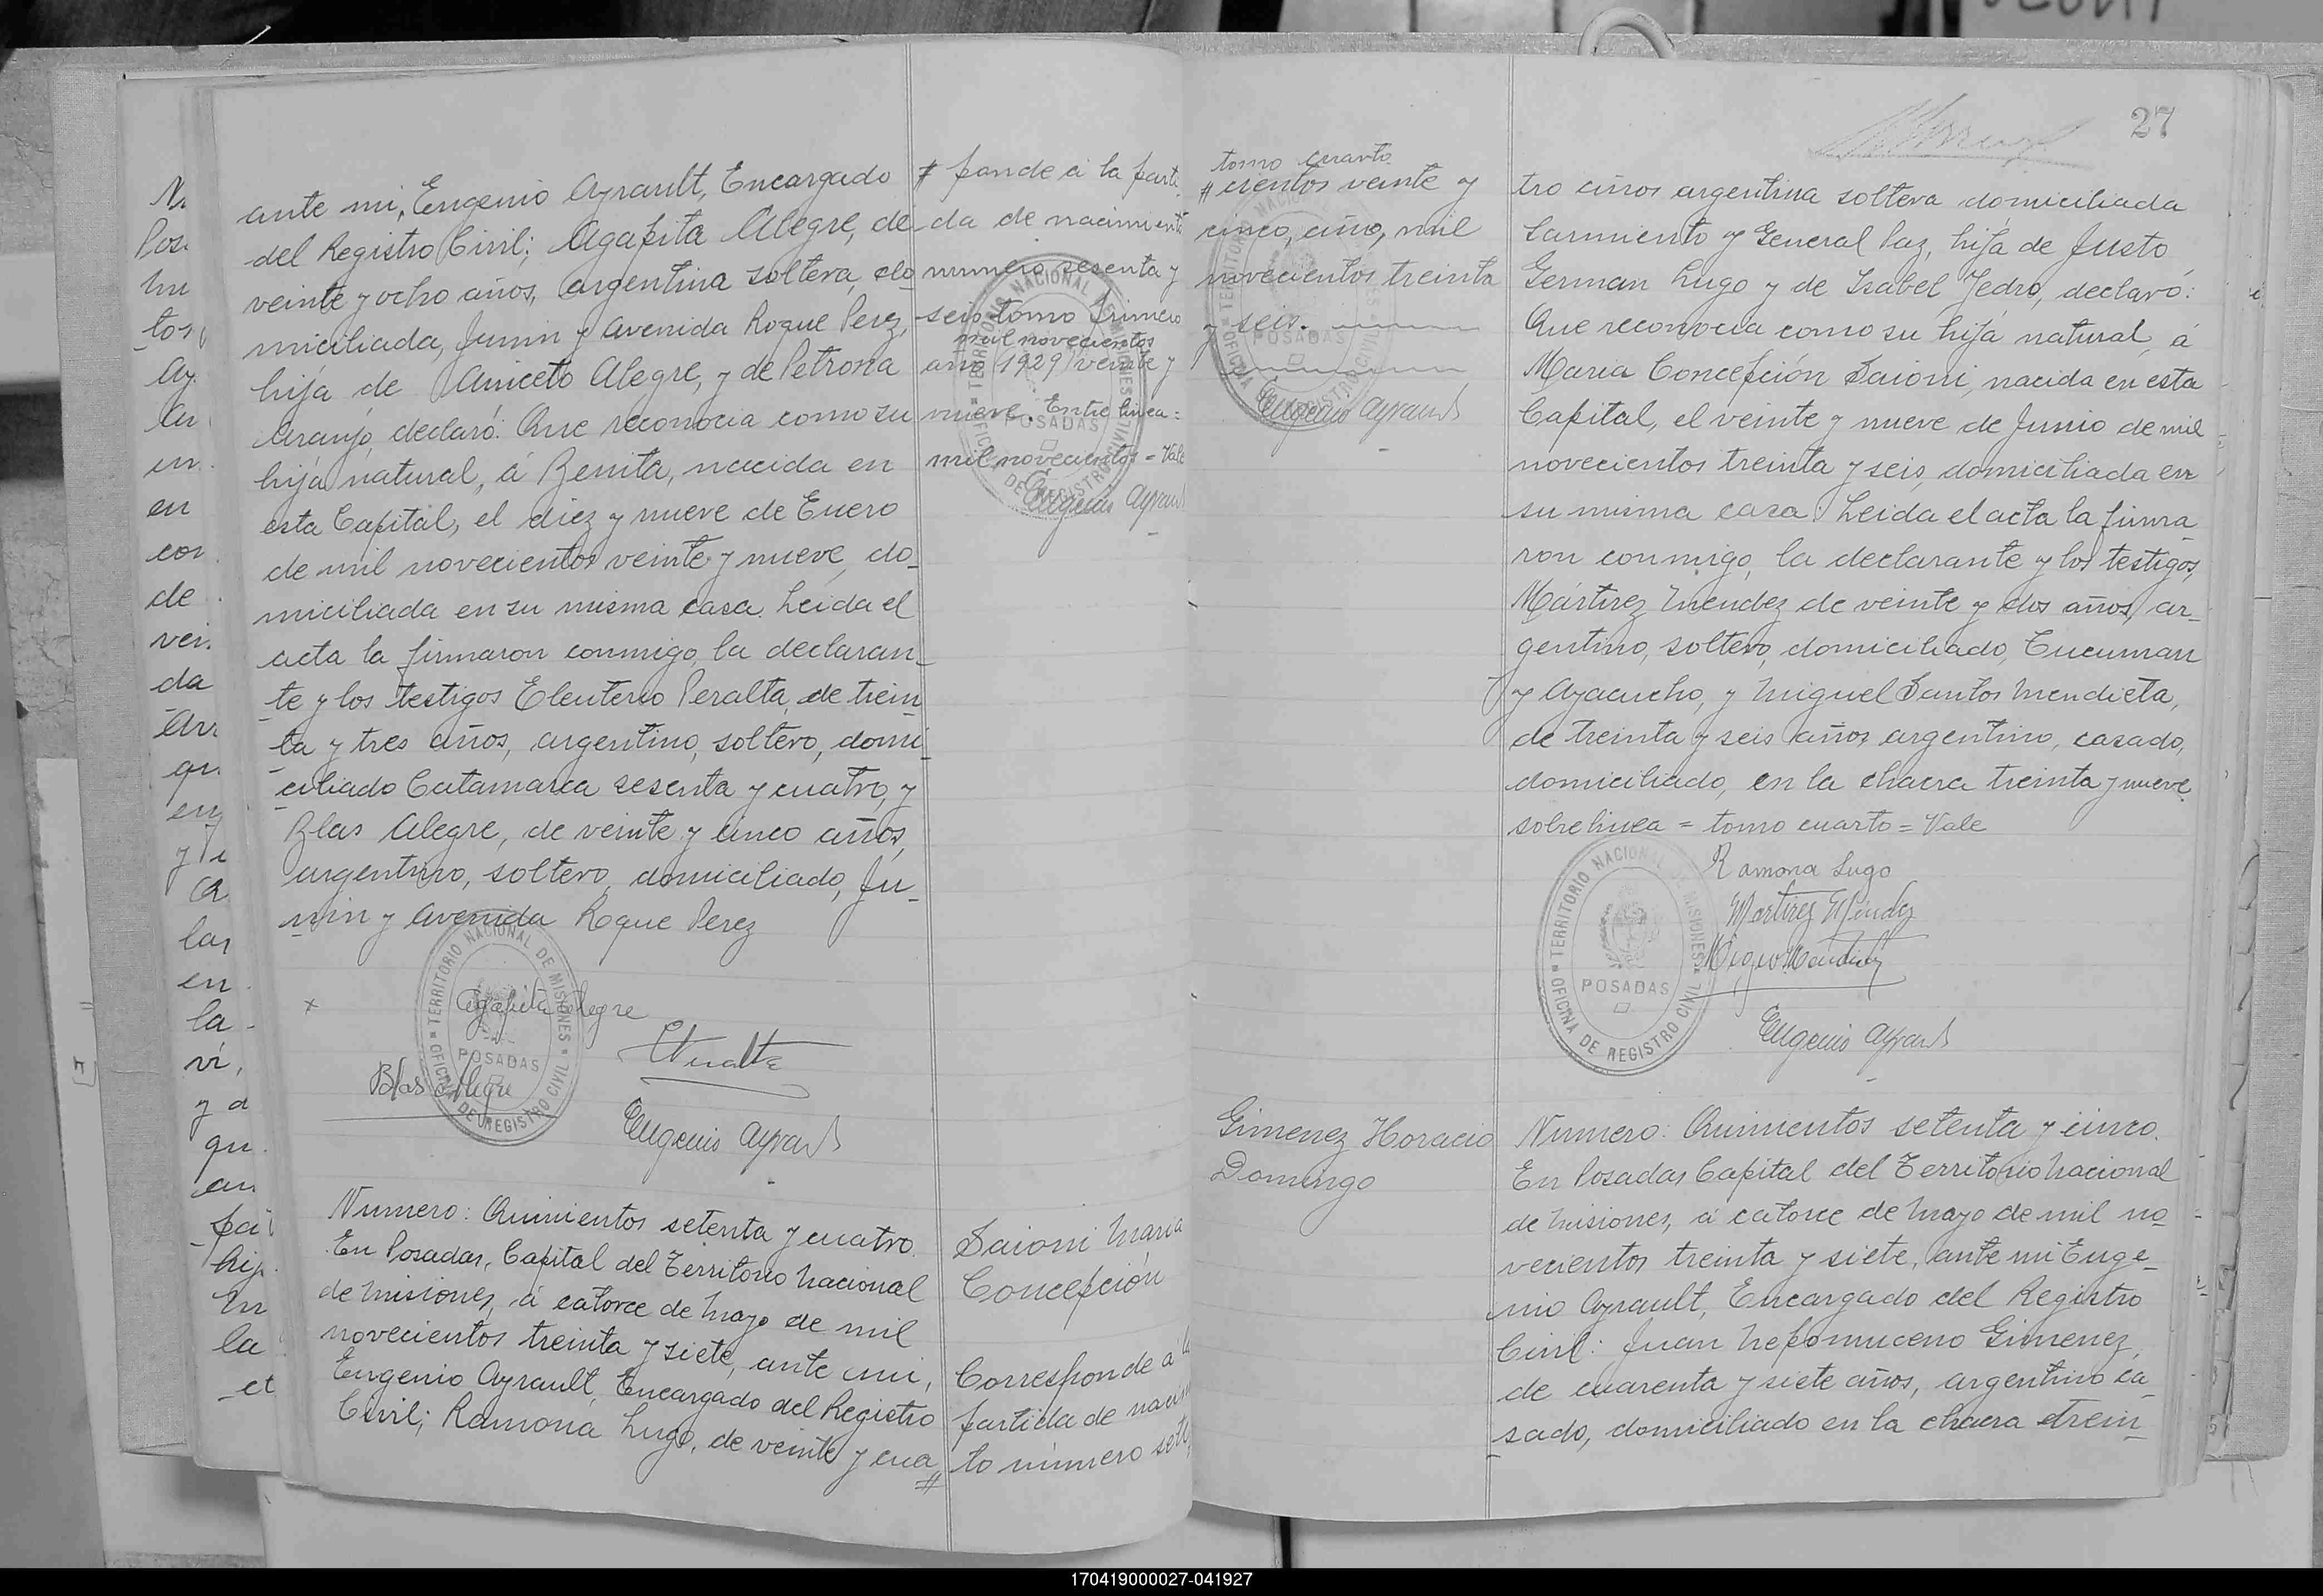 ante mi, Eugenio Ayrault, Encargado
del Registro Civil; Agapita Alegre, de
veinte y ocho años, argentina soltera, do
miciliada, Junin y Avenida Roque Perez,
hija de Aniceto Alegre, y de Petrona
Araujo, declaró: Que reconocia como su
hija natural, á Benita, nacida en
esta Capital, el diez y nueve de Enero
de mil novecientos veinte y nueve, do_
miciliada en su misma casa. Leida el
acta la firmaron conmigo, la declaran_
te y los testigos Eleuterio Peralta, de trein
ta y tres años, argentino, soltero, domi
ciliado Catamarca sesenta y cuatro, y
Blas Alegre, de veinte y cinco años,
argentino, soltero, domiciliado, Ju_
nin y Avenida Roque Perez
Agapita Alegre
Blas Alegre
Eugenio Ayrault
TERRITORIO NACIONAL DE MISIONES
POSADAS
OFICINA DE REGISTRO CIVIL
# ponde á la parti
da de nacimiento
numero sesenta y
seis tomo primero
mil novecientos
año (1929) veinte y
nueve. Entre linea =
mil novecientos = Vale
Eugenio Ayrault
TERRITORIO NACIONAL DE MISIONES
POSADAS
OFICINA DE REGISTRO CIVIL
Numero: Quinientos setenta y cuatro.
En Posadas, Capital del Territorio Nacional
de Misiones, á catorce de Mayo de mil
novecientos treinta y siete, ante mi,
Eugenio Ayrault, Encargado del Registro
Civil; Ramona Lugo, de veinte y cua
#
Saioni Maria
Concepción
Corresponde a la
partida de nacim
to número sete
27
tomo cuarto
# cientos veinte y
cinco, año, mil
novecientos treinta
y seis.
Eugenio Ayrault
TERRITORIO NACIONAL DE MISIONES
POSADAS
OFICINA DE REGISTRO CIVIL
tro años argentina soltera domiciliada
Sarmiento y General Paz, hija de Justo
German Lugo y de Isabel Jedro, declaró:
Que reconocia como su hija natural, á
Maria Concepción Saioni, nacida en esta
Capital, el veinte y nueve de Junio de mil
novecientos treinta y seis, domiciliada en
su misma casa. Leida el acta la firma_
ron conmigo, la declarante y los testigos,
Mártirez Mendez de veinte y dos años, ar_
gentino, soltero, domiciliado, Tucuman
y Ayacucho, y Miguel Santos Mendieta,
de treinta y seis años, argentino, casado,
domiciliado, en la chacra treinta y nueve.
sobrelinea = tomo cuarto = Vale
Ramona Lugo
Martirez Méndez
Eugenio Ayrault
TERRITORIO NACIONAL DE MISIONES
POSADAS
OFICINA DE REGISTRO CIVIL
Gimenez Horacio
Domingo
Numero: Quinientos setenta y cinco.
En Posadas Capital del Territorio Nacional
de Misiones, á catorce de Mayo de mil no_
vecientos treinta y siete, ante mi Euge_
nio Ayrault, Encargado del Registro
Civil: Juan Nepomuceno Gimenez,
de cuarenta y siete años, argentino ca_
sado, domiciliado en la chacra trein_
170419000027-041927